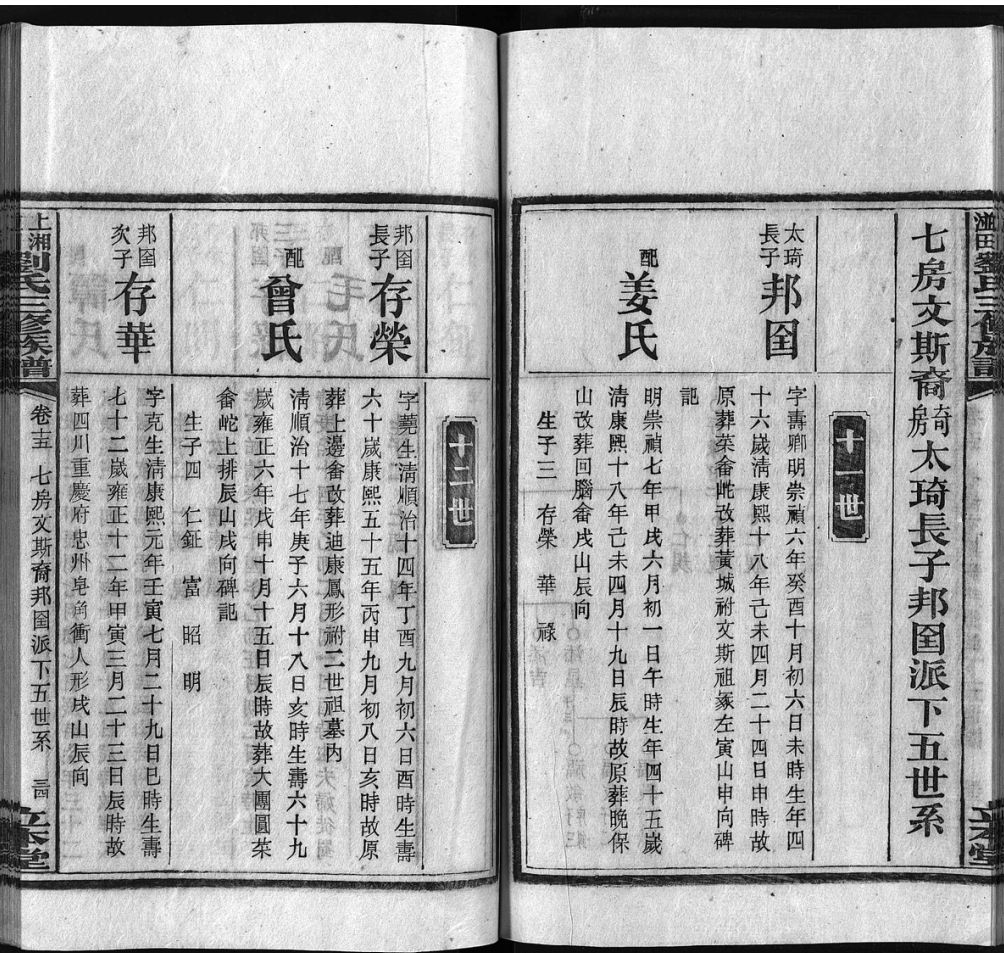 劉氏三修族譜
七房文斯裔琦房太琦長子邦囯派下五世系
十一世
太琦長子
邦囯
字壽卿明崇禎六年癸酉十月初六日未時生年四
十六歲清康熙十八年己未四月二十四日申時故
原葬茶畬屹改葬黃城祔文斯祖冢左寅山申向碑
記
配
姜氏
明崇禎七年甲戌六月初一日午時生年四十五歲
清康熙十八年己未四月十九日辰時故原葬晚保
山改葬回腦畬戌山辰向
生子三 存榮 華 祿
十二世
邦囯長子
存榮
字蕘生清順治十四年丁酉九月初六日酉時生壽
六十歲康熙五十五年丙申九月初八日亥時故原
葬上邊畬改葬迪康鳳形祔二世祖墓內
配
曾氏
清順治十七年庚子六月十八日亥時生壽六十九
歲雍正六年戊申十月十五日辰時故葬大團圓茶
畬屹上排辰山戌向碑記
生子四 仁鉦 富 昭 明
邦囯次子
存華
字克生清康熙元年壬寅七月二十九日巳時生壽
七十二歲雍正十二年甲寅三月二十三日辰時故
葬四川重慶府忠州皂角衝人形戌山辰向
上湘劉氏三修族譜
卷十五 七房文斯裔邦囯派下五世系 三四